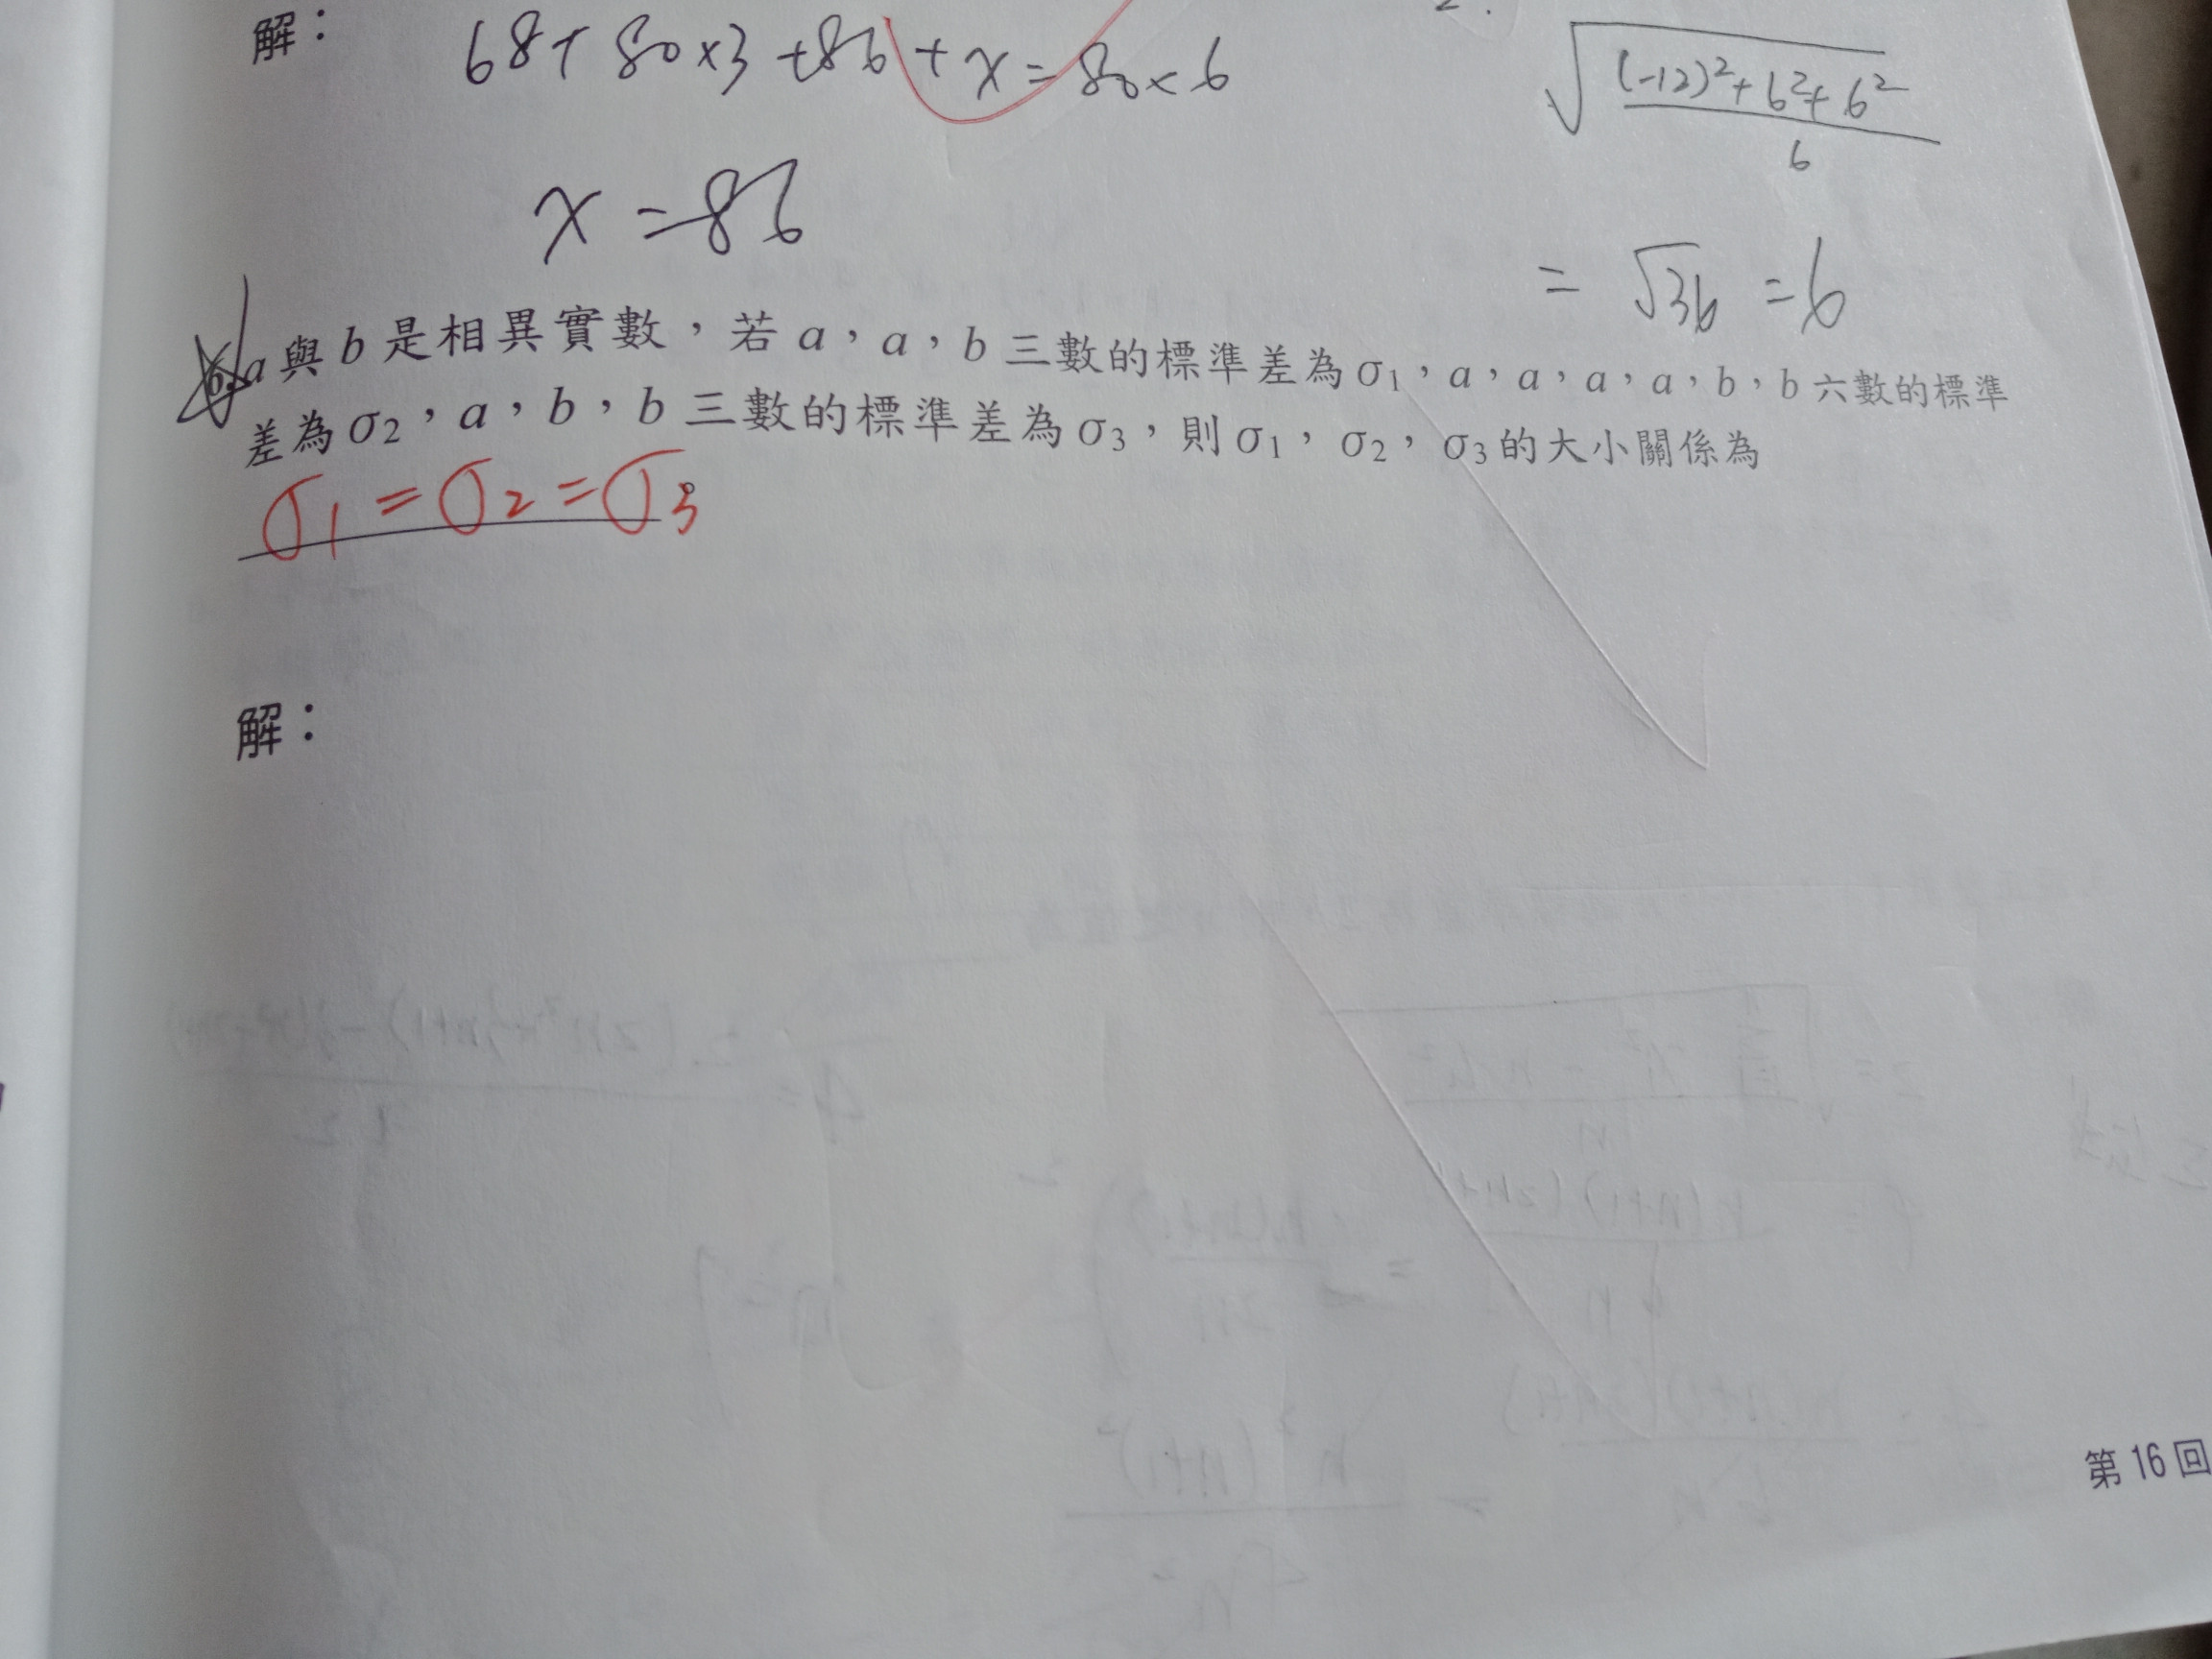 解：
68+80×3+86+x=80×6
x=86
√((-12)²+6²+6²)/6
=√36=6
6. a與b是相異實數，若a，a，b三數的標準差為σ₁，a，a，a，a，b，b六數的標準
差為σ₂，a，b，b三數的標準差為σ₃，則σ₁，σ₂，σ₃的大小關係為
σ₁=σ₂=σ₃。
解：
第16回